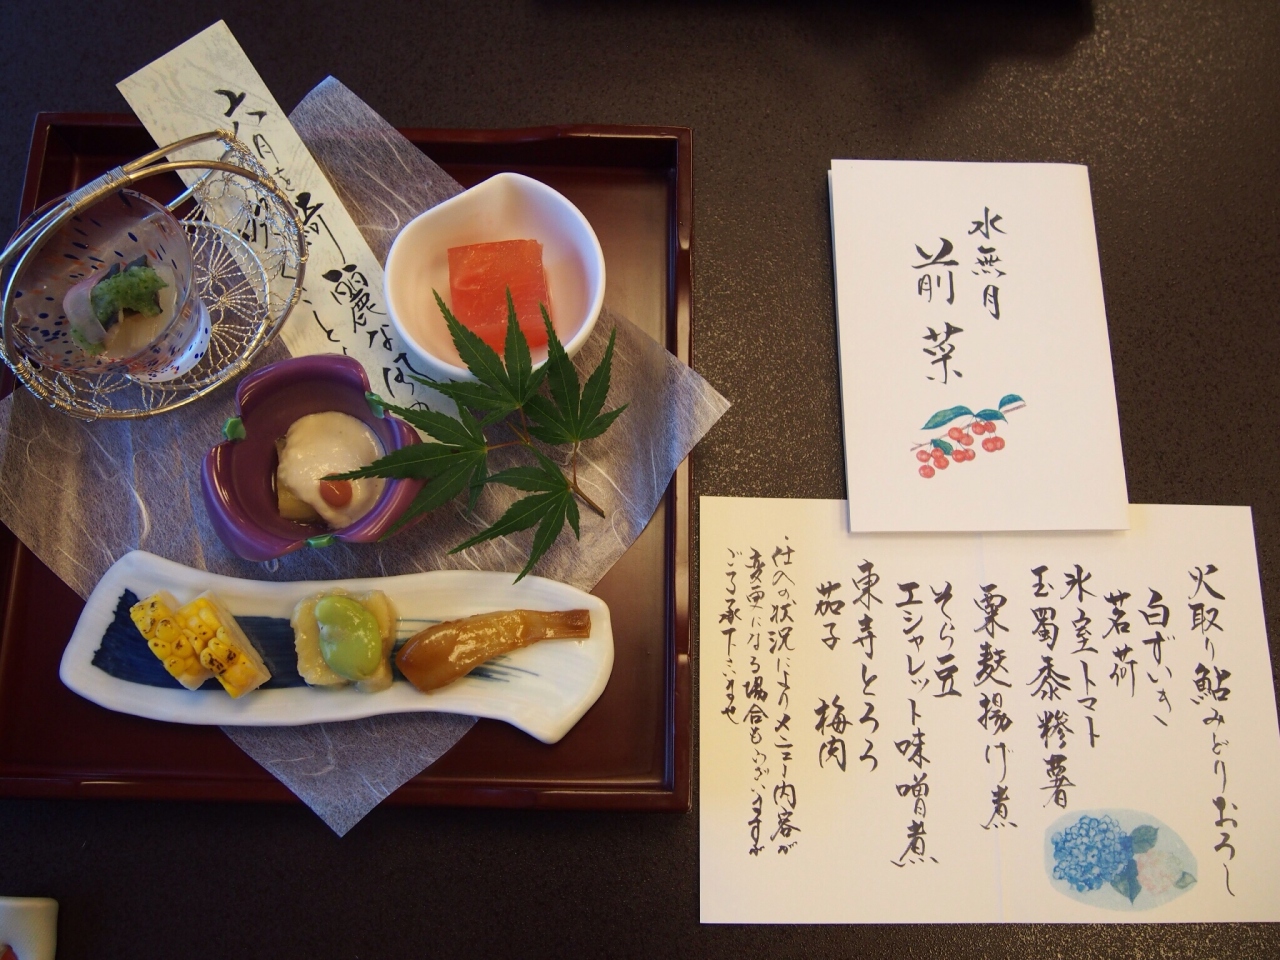 六月を
綺麗な
水無月
前菜
火取り鮎みどりおろし
白ずいき
茗荷
氷室トマト
玉蜀黍糝薯
粟麩揚げ煮
そら豆
エシャレット味噌煮
東寺とろろ
茄子 梅肉
・仕入の状況によりメニュー内容が
変更になる場合もございますが
ご了承下さいませ